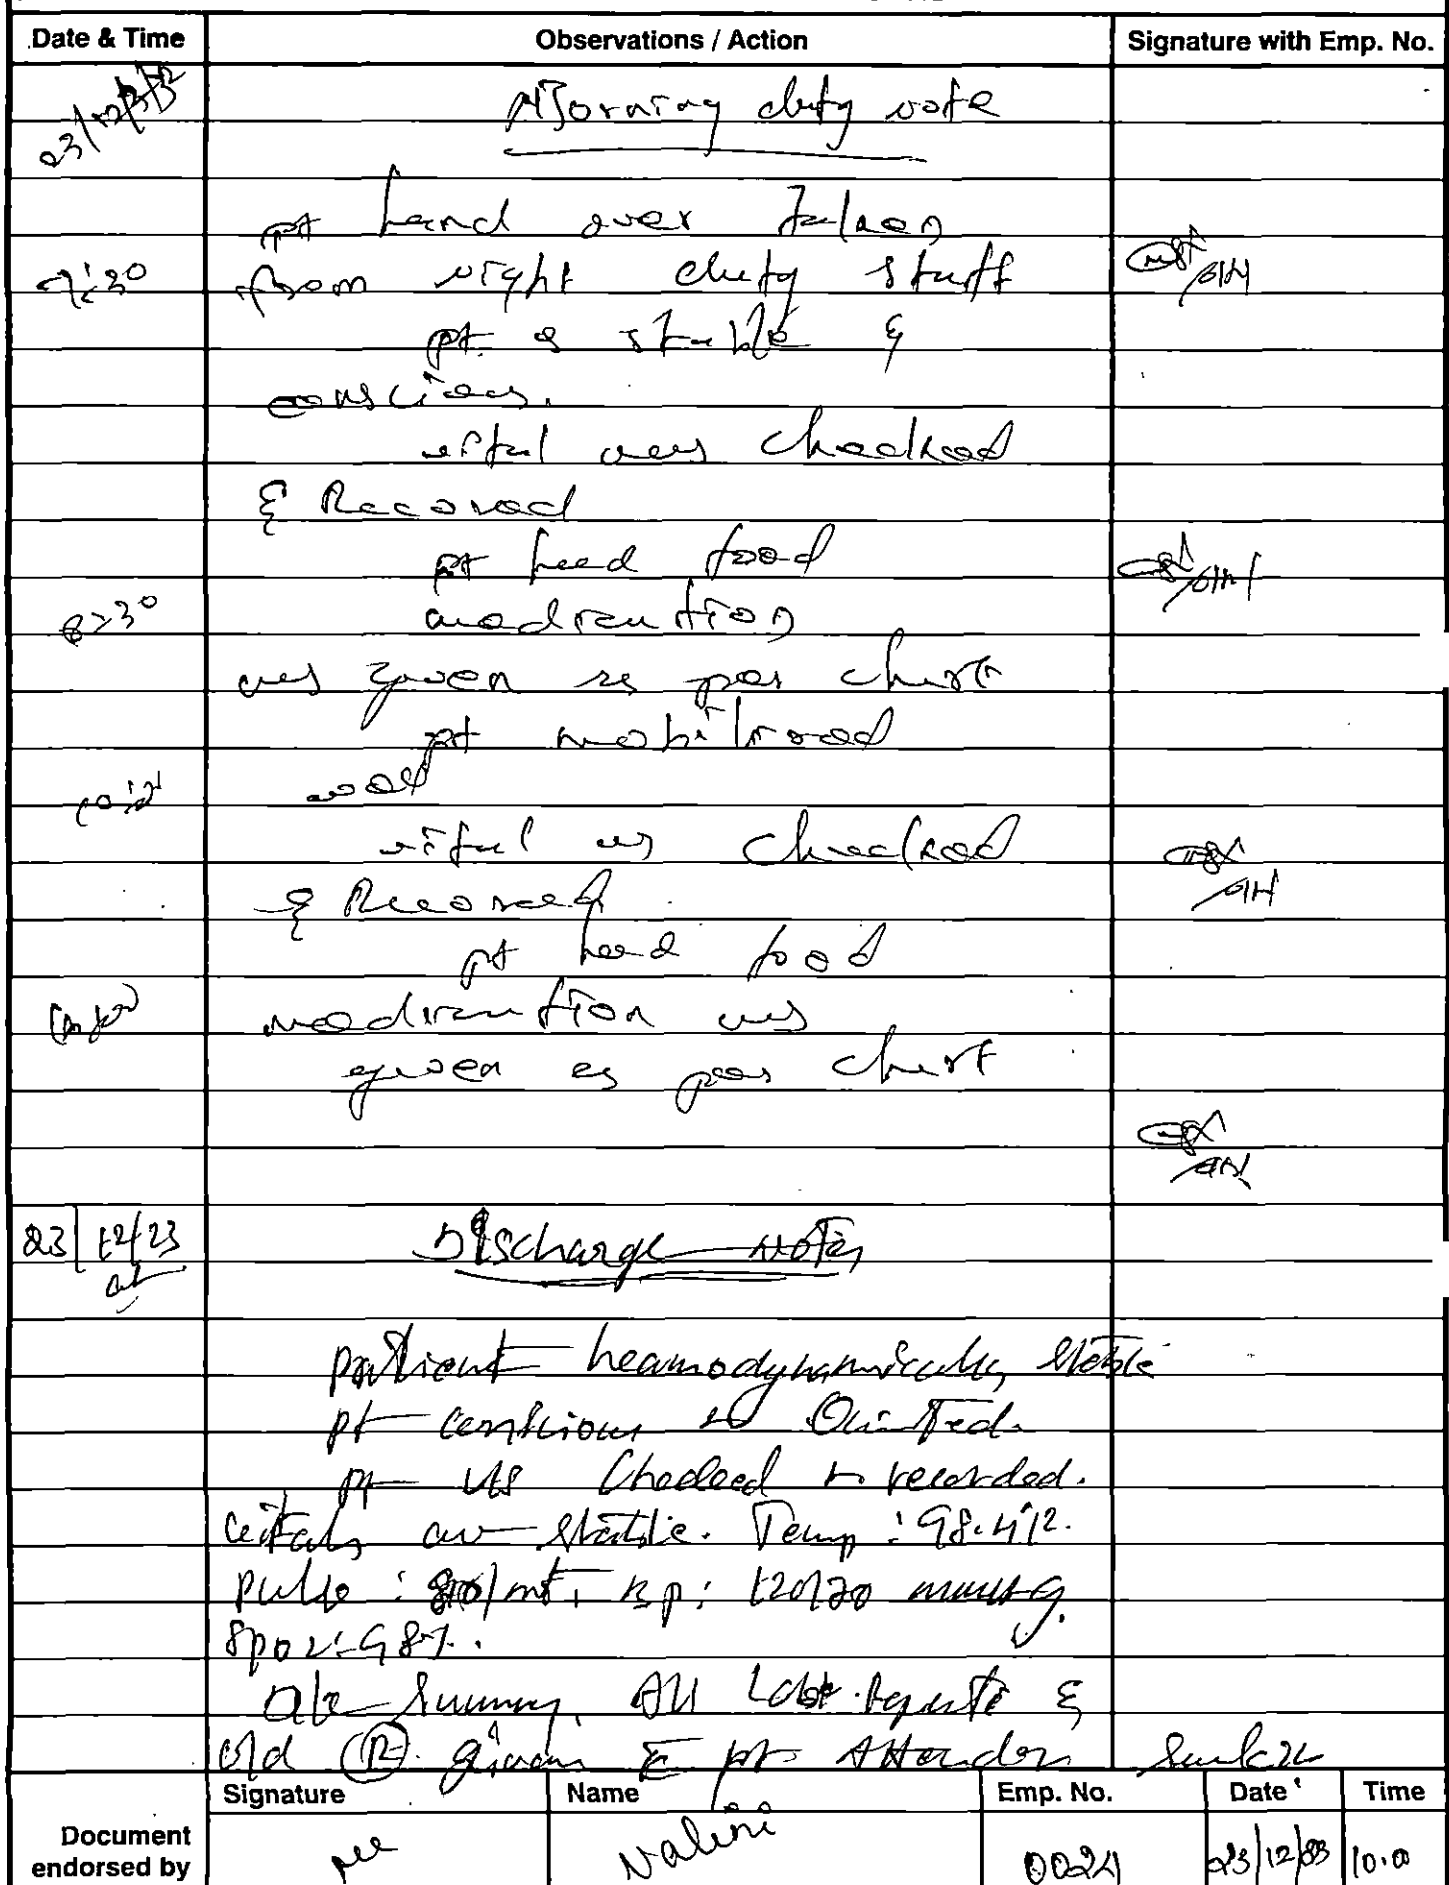 Date & Time Observations / Action Signature with Emp. No.
23/12/23 Morning duty note
pt hand over taken
7:30 from night duty staff
pt is stable &
conscious.
vital was checked
& Recorad
pt heed food
8:30 medication
was given as per chart
pt mobilised
well
vital as checked
& Recored
pt heed food
medication was
given as per chart
23/12/23 Discharge notes
patient heamodynamically stable
pt conscious Oriented
pt checked recorded.
vitals are stable. Temp : 98.4
pulse : /mt, BP: 120/70 mmHg.
SPO2: 98%.
D/c Summary, All Lab Reports &
old given pt Attender
Signature Name Emp. No. Date Time
Document
endorsed by Nalini 0024 23/12/23 10.00